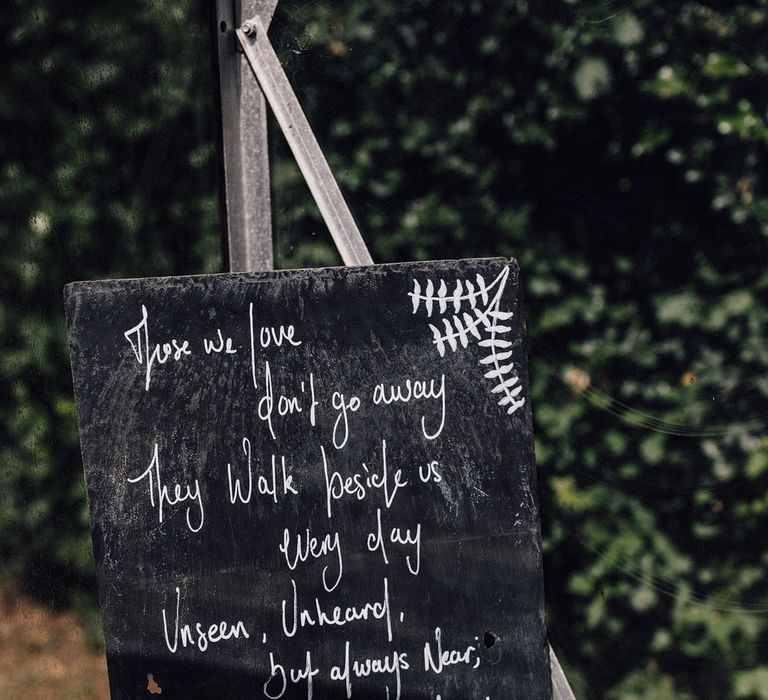 Those we love
don't go away
They Walk beside us
every day
Unseen, Unheard,
but always Near;